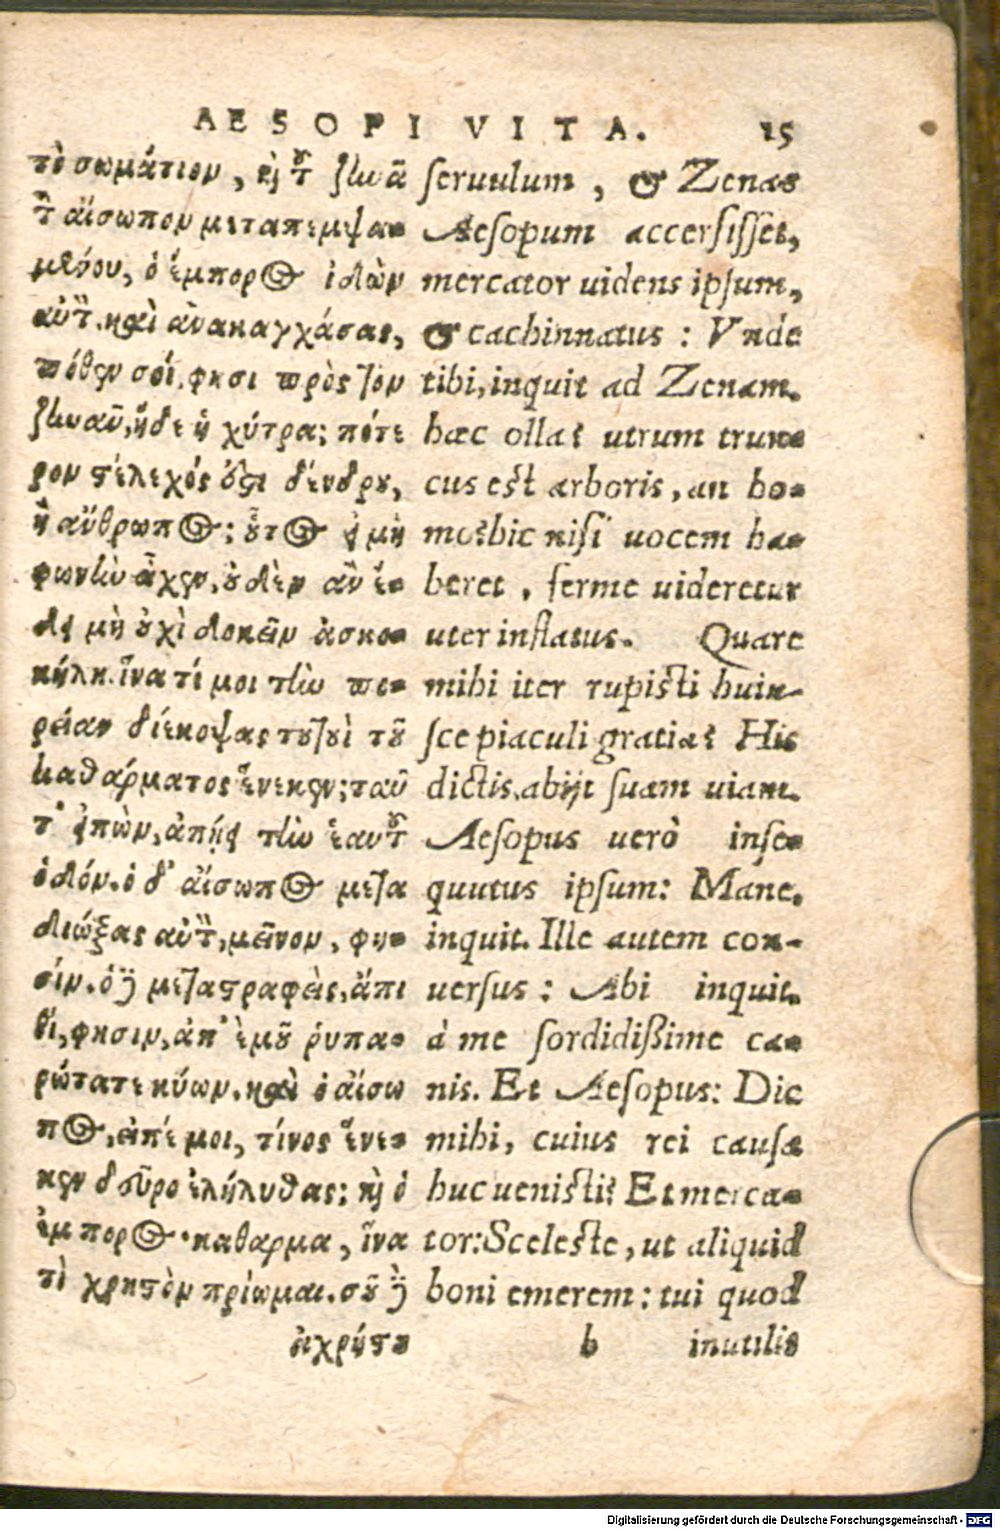 AESOPI VITA. 15
τὸ σωμάτιον, καὶ τοῦ ζηνᾶ
τὸν αἴσωπον μεταπεμψα-
μένου, ὁ ἔμπορος ἰδὼν
αὐτὸν, καὶ ἀνακαγχάσας,
πόθεν σοί, φησι πρὸς τὸν
ζηνᾶν, ἥδε ἡ χύτρα; πότε
ρον στέλεχός ἐστι δένδρου,
ἢ ἄνθρωπος; οὗτος εἰ μὴ
φωνὴν εἶχεν, οὐδὲν ἂν ἔ-
δει μὴ οὐχὶ δοκεῖν ἀσκο-
κήλη. ἵνα τί μοι τὴν πο-
ρείαν διέκοψας τουτουὶ τοῦ
καθάρματος ἕνεκεν; ταῦ
τ' εἰπὼν, ἀπῄει τὴν ἑαυτοῦ
ὁδόν. ὁ δ' αἴσωπος μετα
διώξας αὐτὸν, μεῖνον, φη-
σίν. ὁ δὲ μεταστραφεὶς, ἄπι
θι, φησιν, ἀπ' ἐμοῦ ῥυπα-
ρώτατε κύων. καὶ ὁ αἴσω
πος, εἰπέ μοι, τίνος ἕνε-
κεν δεῦρο ἐλήλυθας; καὶ ὁ
ἔμπορος. κάθαρμα, ἵνα
τὶ χρηστὸν πρίωμαι. σοῦ δὲ
ἀχρήστο-
seruulum, & Zenas
Aesopum accersisset,
mercator uidens ipsum,
& cachinnatus: Vnde
tibi, inquit ad Zenam.
hæc olla? utrum trun-
cus est arboris, an ho-
mo? hic nisi uocem ha-
beret, ferme uideretur
uter inflatus. Quare
mihi iter rupisti huiu-
sce piaculi gratia? His
dictis, abijt suam uiam.
Aesopus uerò inse-
quutus ipsum: Mane.
inquit. Ille autem con-
uersus: Abi inquit.
à me sordidißime ca-
nis. Et Aesopus: Dic
mihi, cuius rei causa
huc uenisti? Et merca-
tor: Sceleste, ut aliquid
boni emerem: tui quod
b inutilis
Digitalisierung gefördert durch die Deutsche Forschungsgemeinschaft - DFG